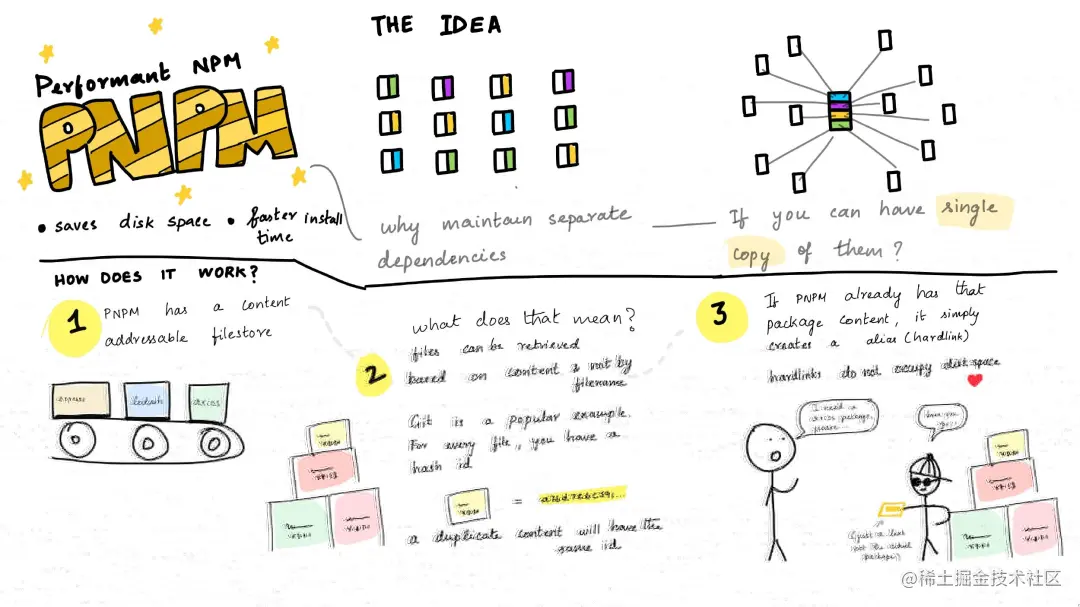 Performant NPM
PNPM
• saves disk space • faster install
time
THE IDEA
why maintain separate
dependencies
If you can have single
copy of them?
HOW DOES IT WORK?
1
PNPM has a content
addressable filestore
express
lodash
axios
2
what does that mean?
files can be retrieved
based on content & not by
filename
Git is a popular example.
For every file, you have a
hash id
=
a duplicate content will have the
same id
3
If PNPM already has that
package content, it simply
creates a alias (hardlink)
hardlinks do not occupy disk space
I need a
axios package,
please...
here you
go!
(just a link
not the actual
package)
@稀土掘金技术社区